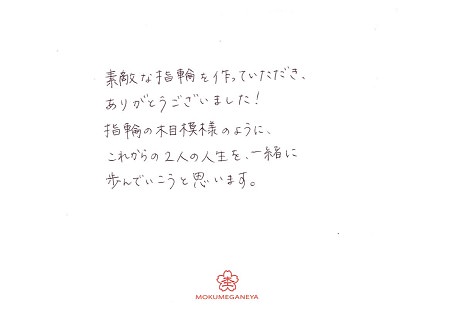 素敵な指輪を作っていただき、
ありがとうございました！
指輪の木目模様のように、
これからの2人の人生を、一緒に
歩んでいこうと思います。
MOKUMEGANEYA